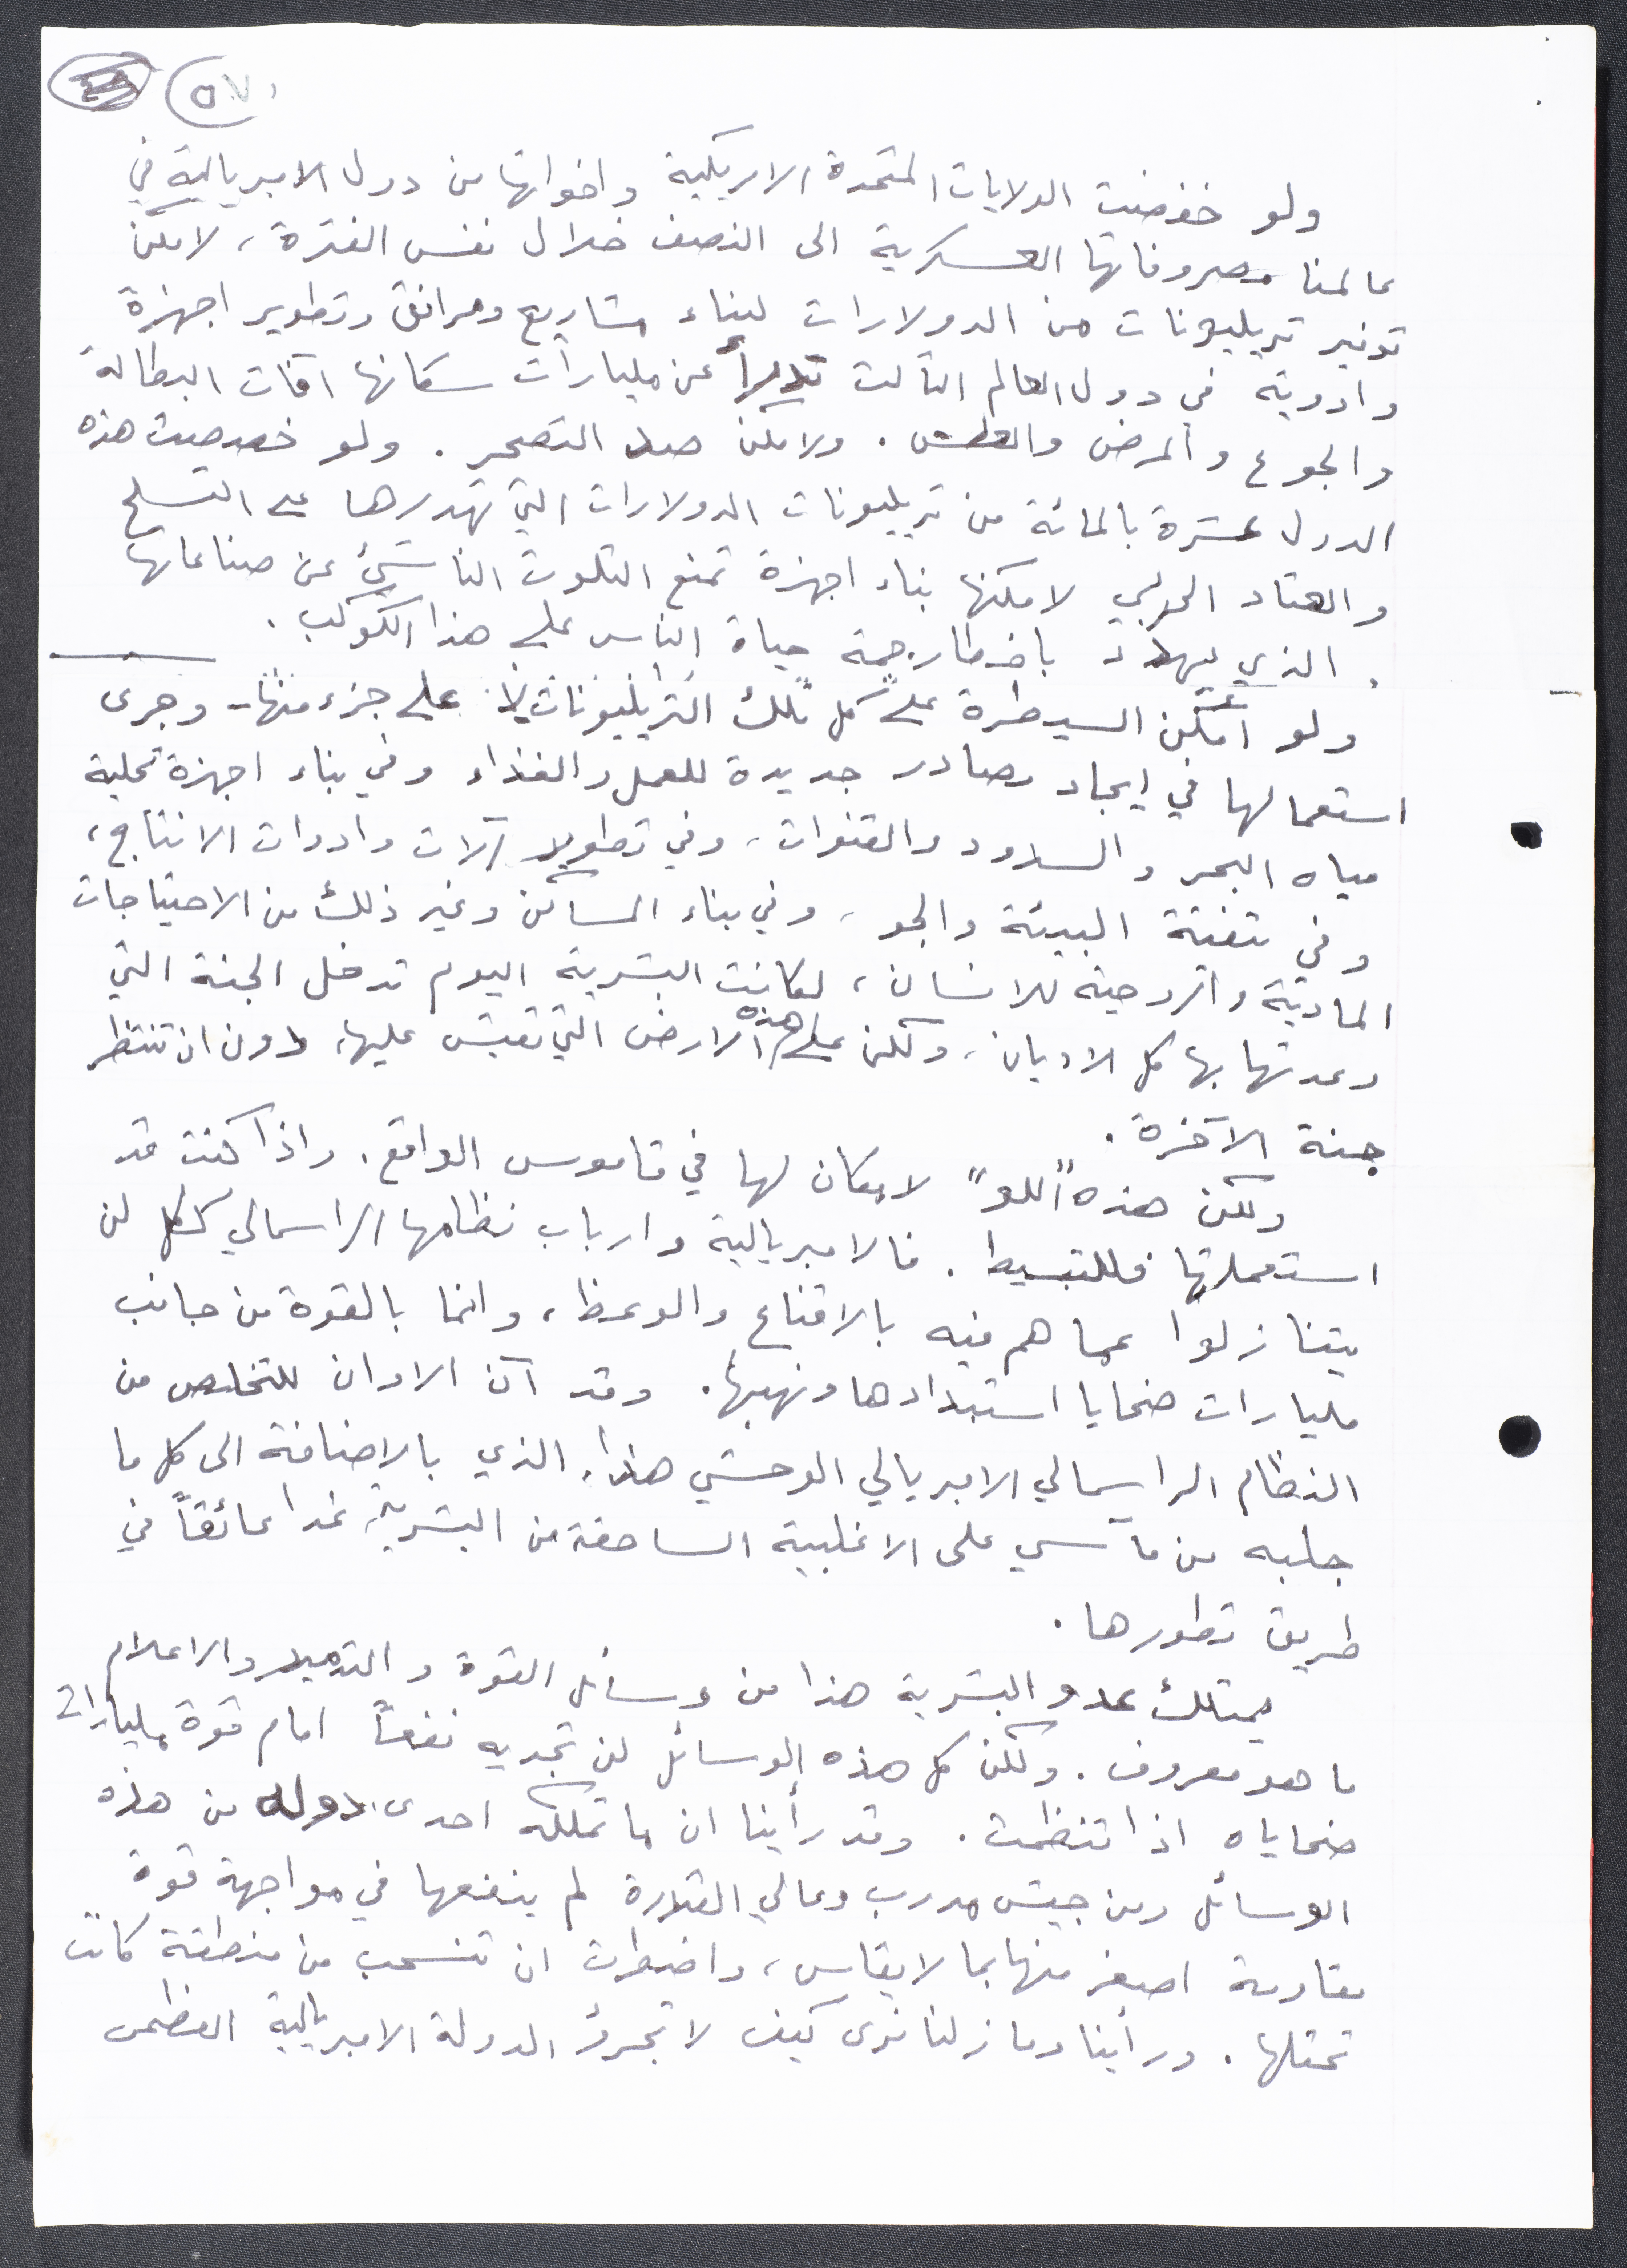 ٥٧
ولو خفضت الولايات المتحدة الامريكية واخواتها من دول الامبريالية في
عالمنا مصروفاتها العسكرية الى النصف خلال نفس الفترة، لامكن
توفير تريليونات من الدولارات لبناء مشاريع ومرافق وتطوير اجهزة
وادوية في دول العالم الثالث تدرأ عن مليارات سكانها آفات البطالة
والجوع والمرض والعطش. ولامكن صد التصحر. ولو خصصت هذه
الدول عشرة بالمائة من تريليونات الدولارات التي تهدرها على التسلح
والعتاد الحربي لامكنها بناء اجهزة تمنع التلوث الناشئ عن صناعاتها
الذي يهدد باخطار جمة حياة الناس على هذا الكوكب.
ولو امكن السيطرة على كل تلك التريليونات لا على جزء منها - وجرى
استعمالها في ايجاد مصادر جديدة للعمل والغذاء وفي بناء اجهزة تحلية
مياه البحر والسدود والقنوات، وفي تطوير آلات وادوات الانتاج،
وفي تنقية البيئة والجو، وفي بناء المساكن وغير ذلك من الاحتياجات
المادية والروحية للانسان، لكانت البشرية اليوم تدخل الجنة التي
وعدتها بها كل الاديان، ولكن على هذه الارض التي تعيش عليها، دون ان تنتظر
جنة الآخرة.
ولكن هذه "اللو" لا مكان لها في قاموس الواقع. واذا كنت قد
استعملتها فللتبسيط. فالامبريالية وارباب نظامها الراسمالي ككل لن
يتنازلوا عما هم فيه بالاقناع والوعظ، وانما بالقوة من جانب
مليارات ضحايا استبدادها ونهبها. وقد آن الاوان للتخلص من
النظام الراسمالي الامبريالي الوحشي هذا، الذي بالاضافة الى كل ما
جلبه من مآسي على الاغلبية الساحقة من البشرية، غدا عائقاً في
طريق تطورها.
يمتلك عدو البشرية هذا من وسائل القوة والتدمير والاعلام
ما هو معروف. ولكن كل هذه الوسائل لن تجديه نفعاً امام قوة مليارات
ضحاياه اذا تنظمت. وقد رأينا ان ما تملكه احدى دوله من هذه
الوسائل ومن جيش مدرب وعالي القدرة لم ينفعها في مواجهة قوة
مقاومة اصغر منها بما لا يقاس، واضطرت ان تنسحب من منطقة كانت
تحتلها. ورأينا وما زلنا نرى كيف لا تجرؤ الدولة الامبريالية العظمى